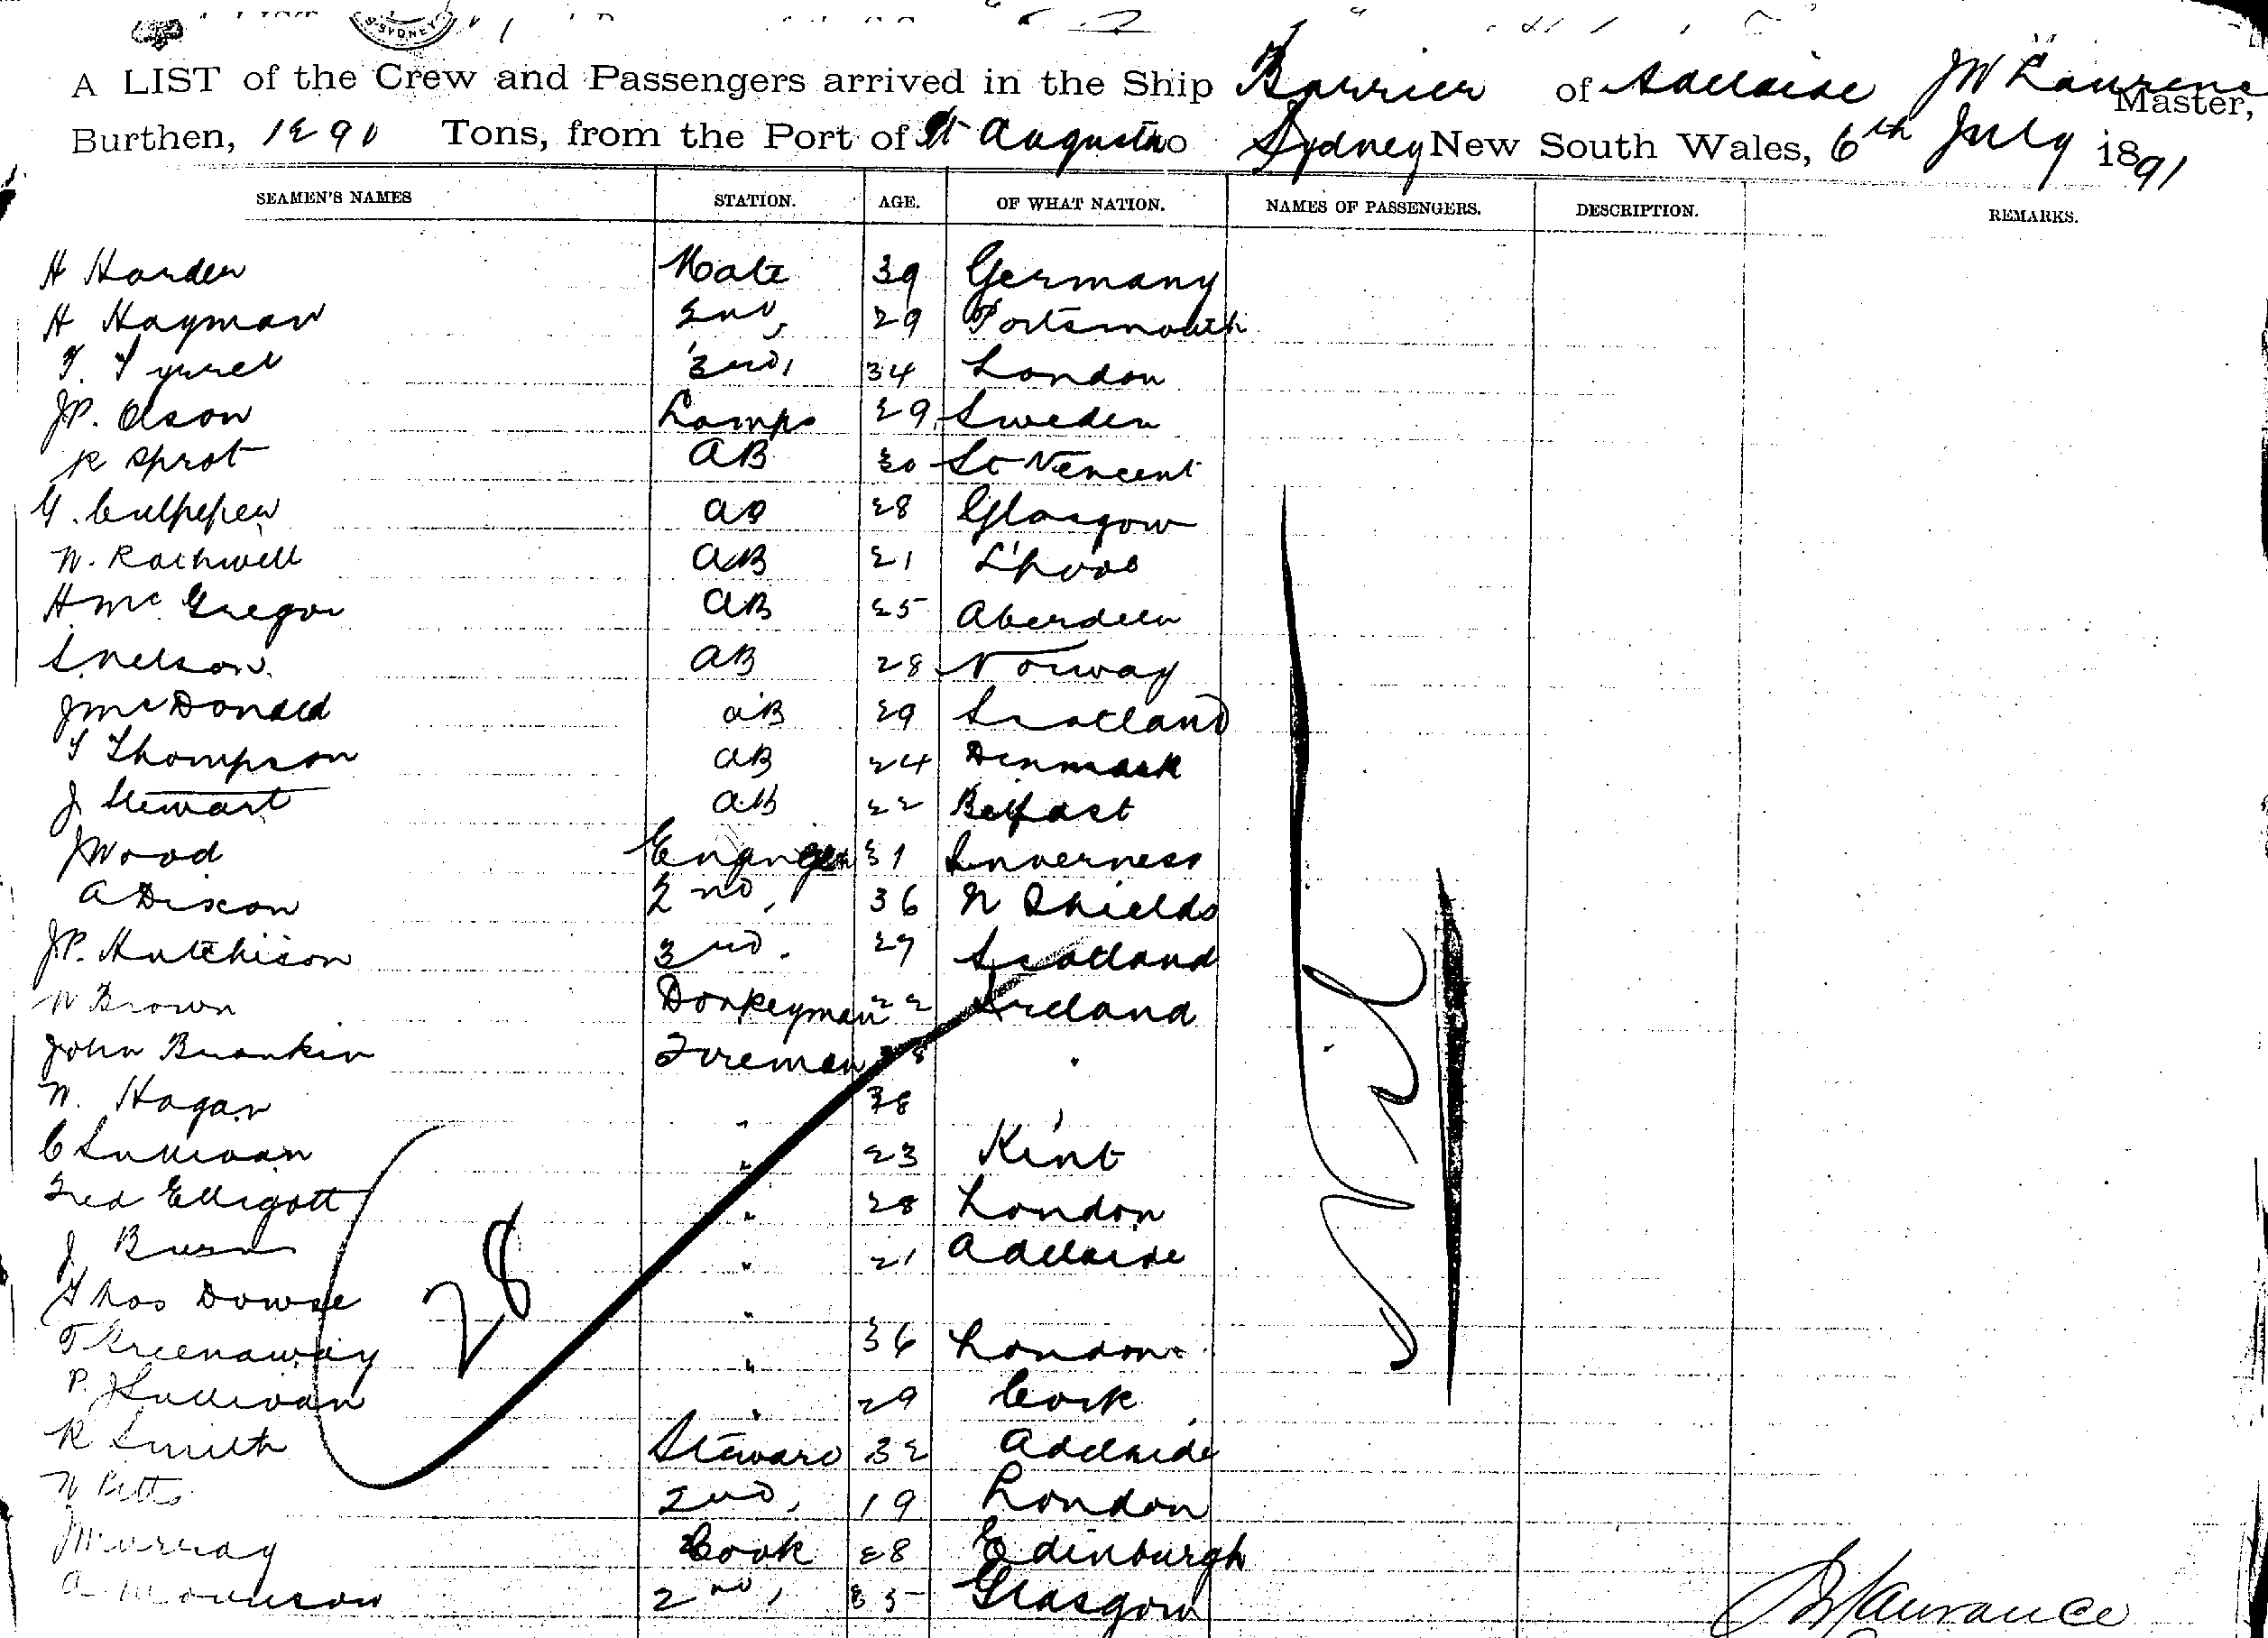 SYDNEY
A LIST of the Crew and Passengers arrived in the Ship Barrier of Adelaide JW Laurence Master,
Burthen, 1290 Tons, from the Port of Pt Augusta to Sydney New South Wales, 6th July 1891
SEAMEN'S NAMES STATION. AGE. OF WHAT NATION. NAMES OF PASSENGERS. DESCRIPTION. REMARKS.
H Harder Mate 39 Germany
H Hayman 2nd, 29 Portsmouth
T. Tyrrel 3rd, 34 London
JP. Olson Lamps 29 Sweden
R Sprot AB 30 St Vencent
G. Culpeper AB 28 Glasgow
W. Rothwell AB 21 L'pool
H. Mc Gregor AB 25 Aberdeen
S. Nelson. AB 28 Norway
J Mc Donald AB 29 Scotland
T Thompson AB 24 Denmark
J Stewart AB 22 Belfast
J Wood 31 Inverness
A Dixon 2nd, 36 N Shields
JP. Hutchison 3rd. 27 Scotland
W Brown Donkeyman 22 Ireland
John Fireman "
W. Hagan " 38 "
C Sullivan " 23 Kent
Fred Elligott " 28 London
J Burn " 21 Adelaide
Thos Dowse "
T Greenaway " 36 London
P. J Sullivan " 29 Cork
R Smith Steward 32 Adelaide
W Petts 2nd, 19 London
J Murray Cook 28 Edinburgh
A Morrison 2nd, Glasgow
28
Nil
JW Laurance